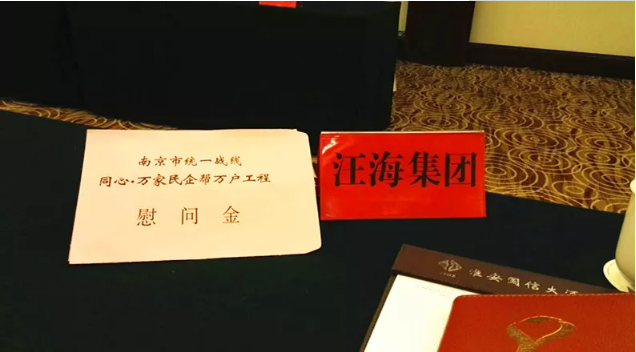 南京市统一战线
同心·万家民企帮万户工程
慰问金
汪海集团
淮安国信大酒